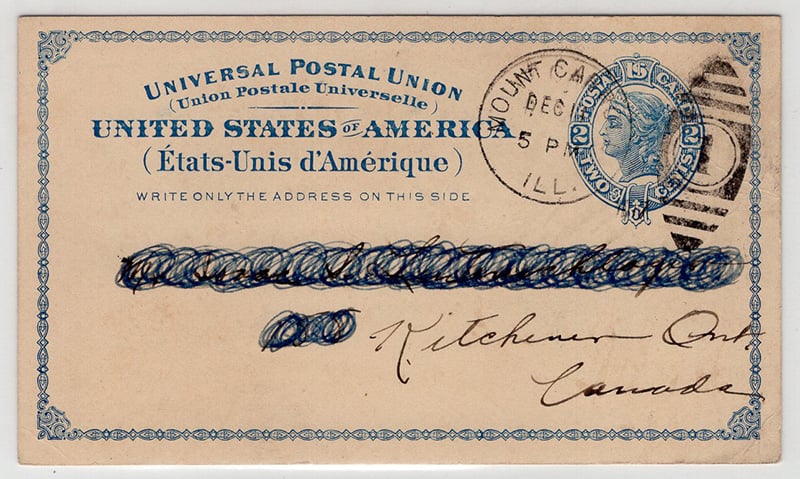 UNIVERSAL POSTAL UNION
(Union Postale Universelle)
UNITED STATES OF AMERICA
(États-Unis d'Amérique)
WRITE ONLY THE ADDRESS ON THIS SIDE
MOUNT
DEC
5 PM
ILL.
U.S. POSTAL CARD
2 TWO CENTS 2
Kitchener Ont
Canada